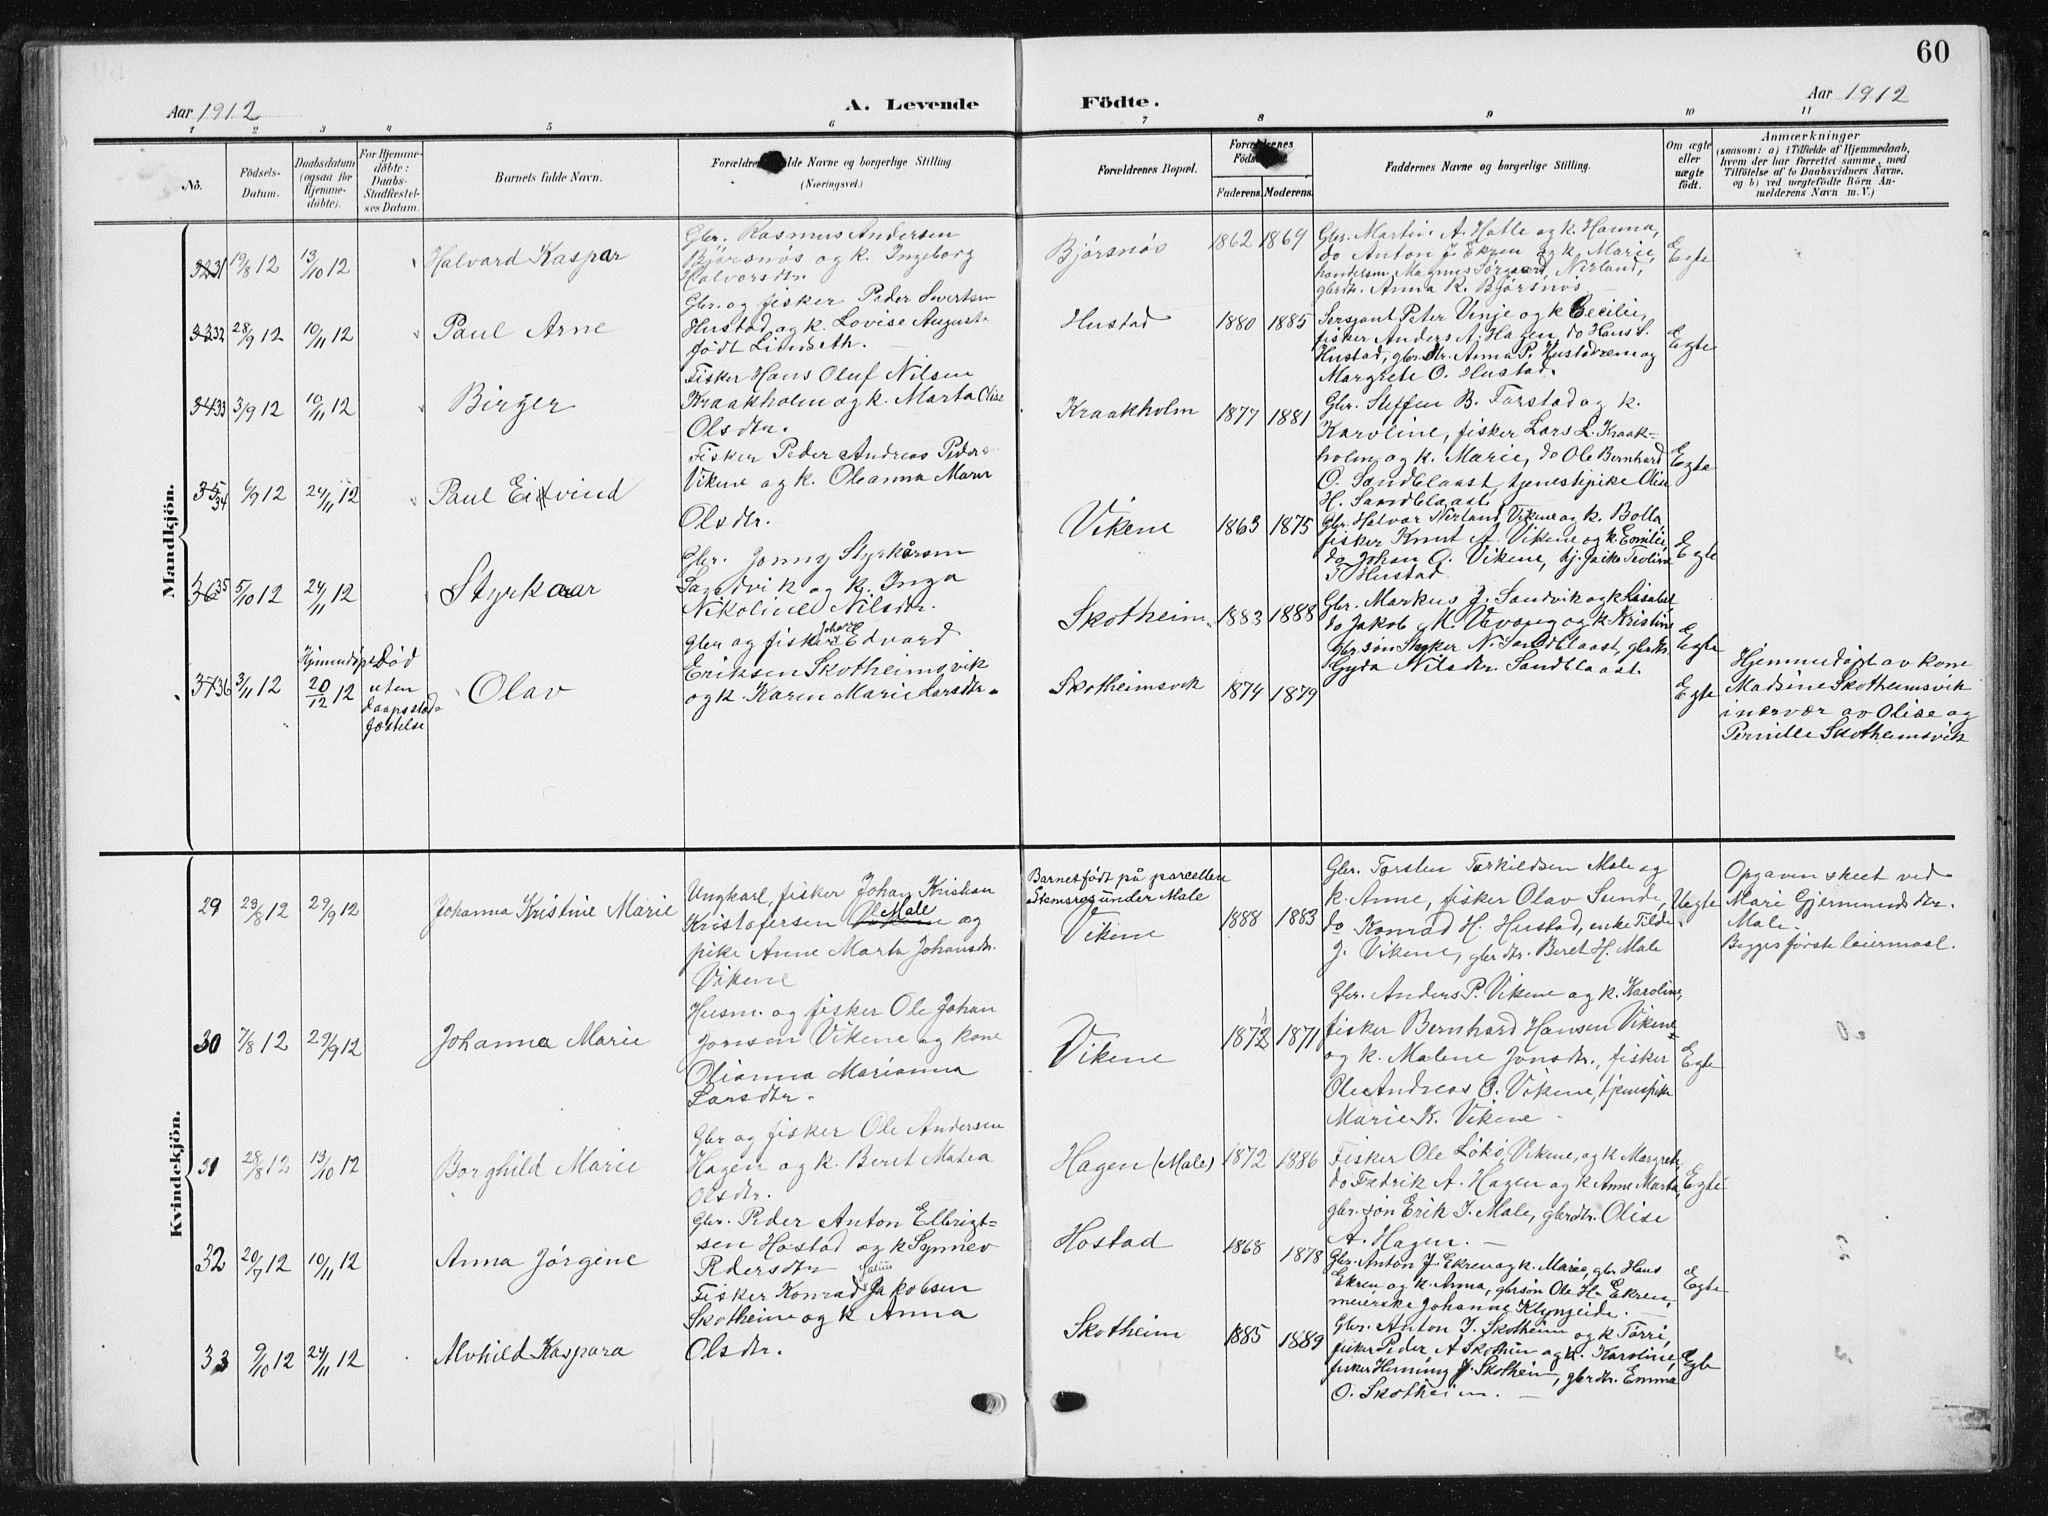 60
Aar 1912
A. Levende Födte.
Aar 1912
1 2 3 4 5 6 7 8 9 10 11
No.
Födsels-
Datum.
Daabsdatum
(ogsaa for
Hjemme-
döbte).
For Hjemme-
döbte:
Daabs-
Stadfæstel-
ses Datum.
Barnets fulde Navn.
Forældrenes fulde Navne og borgerlige Stilling
(Næringsvei.)
Forældrenes Bopæl.
Forældrenes
Faderens. Moderens.
Faddernes Navne og borgerlige Stilling.
Om ægte
eller
uægte
födt.
Anmærkninger
(saasom: a) i Tilfælde af Hjemmedaab,
hvem der har forrettet samme, med
Tilföielse af to Daabsvidners Navne,
og b) ved uægtefödte Börn An-
melderens Navn m. V.)
Mandkjön.
3231
19/8 12
13/10 12
Halvard Kaspar
Gbr. Rasmus Andersen
Bjørsnøs og k. Ingeborg
Halvorsdtr.
Bjørsnøs
1862 1869
Gbr. Martin A. Hatle og k. Hanna,
do Anton J. Ekren og k. Marie,
handelsm. Magnus Nerland,
gbrdtr. Anna R. Bjørsnøs
Egte
3332
28/9 12
10/11 12
Paul Arne
Gbr. og fisker Peder Sivertsen
Hustad og k. Lovise August.
født Lindseth.
Hustad
1880 1885
Sersjant Peter Vinje og k Cecilie,
fisker Anders A. Hagen, do Hans S.
Hustad, gbr.dtr. Anna P. Hustad og
Margrete O. Hustad.
Egte
3433
3/9 12
10/11 12
Birger
Fisker Hans Oluf Nilsen
Kraakholm og k. Marta Olise
Olsdtr.
Kraakholm
1877 1881
Gbr. Steffen B. Farstad og k.
Karoline, fisker Lars L. Kraak-
holm og k. Marie, do Ole Bernhard
O. Sandblaast, tjenestepike Olise
H. Sandblaast
Egte
3534
6/9 12
24/11 12
Paul Eivind
Fisker Peder Andreas Peders
Vikene og k. Oleanna Marie
Olsdtr.
Vikene
1863 1875
Gbr. Halvor Nerland Vikene og k. Bolla,
fisker Knut A. Vikene og k Emilie,
do Johan O. Vikene, tj. pike Teoline
T. Hustad
Egte
3635
5/10 12
24/11 12
Styrkaar
Gbr. Jonny Styrkårsen
Sandvik og k. Inga
Nikoline Nilsdtr.
Skotheim.
1883 1888
Gbr. Markus J. Sandvik og k Lisabet,
do Jakob M. Vevang og k Kristine
gbr.søn N. Sandblaast, gbrdtr.
Gyda Nilsdtr. Sandblaast.
Egte
3736
3/11 12
Hjemmedøpt
20/12 12
Død
uten
daapsstad-
fæstelse
Olav
Gbr og fisker Johan Edvard
Eriksen Skotheimsvik
og k. Karen Marie Larsdtr.
Skotheimsvik
1874 1879
Egte
Hjemmedøpt av kone
Madsine Skotheimsvik
i nærvær av Olise og
Pernille Skotheimsvik
Kvindekjön.
29
23/8 12
29/9 12
Johanna Kristine Marie
Ungkarl, fisker Johan Kristian
Kristofersen Male og
pike Anne Marta Johansdtr.
Vikene
Barnet født på parcellen
Stemsros under Male
Vikene
1888 1883
Gbr. Torsten Torkildsen Male og
k. Anne, fisker Olav Sunde,
do Konrad H. Hustad, enke Tilde
J. Vikene, gbr dtr. Beret H. Male
Uegte
Opgaven skeet ved
Mari Gjermundsdtr.
Male.
Begges første leiermaal.
30
7/8 12
29/9 12
Johanna Marie
Husm. og fisker Ole Johan
Jonsen Vikene og kone
Olianna Marianna
Larsdtr.
Vikene
1872 1871
Gbr. Anders P. Vikene og k. Karoline,
fisker Bernhard Hansen Vikene
og k. Malene Jonsdtr., fisker
Ole Andreas O. Vikene, tjenpike
Marie K. Vikene
Egte
31
28/8 12
13/10 12
Borghild Marie
Gbr og fisker Ole Andersen
Hagen og k. Beret Matea
Olsdtr.
Hagen (Male)
1872 1886
Fisker Ole Løkø, Vikene, og k Margrete
do Fredrik A. Hagen og k Anne Marta,
gbr. søn Erik I. Male, gbrdtr. Olise
A. Hagen.
Egte
32
20/7 12
10/11 12
Anna Jørgine
Gbr. Peder Anton Ellevigt-
sen Hostad og k Synnev
Pedersdtr
Hostad
1868 1878
Gbr. Anton J. Ekren og k. Marie, gbr. Hans
Ekren og k. Anna, gbrsøn Ole H. Ekren,
meierske Johanne Klyngeide.
Egte
33
9/10 12
24/11 12
Alvhild Kaspara
Fisker Konrad Julius Jakobsen
Skotheim og k Anna
Olsdtr.
Skotheim
1885 1889
Gbr. Anton J. Skotheim og k Torri,
fisker Peder A Skothein og k. Karoline,
fisker Henning J. Skotheim, gbrdtr. Emma
O. Skotheim.
Egte